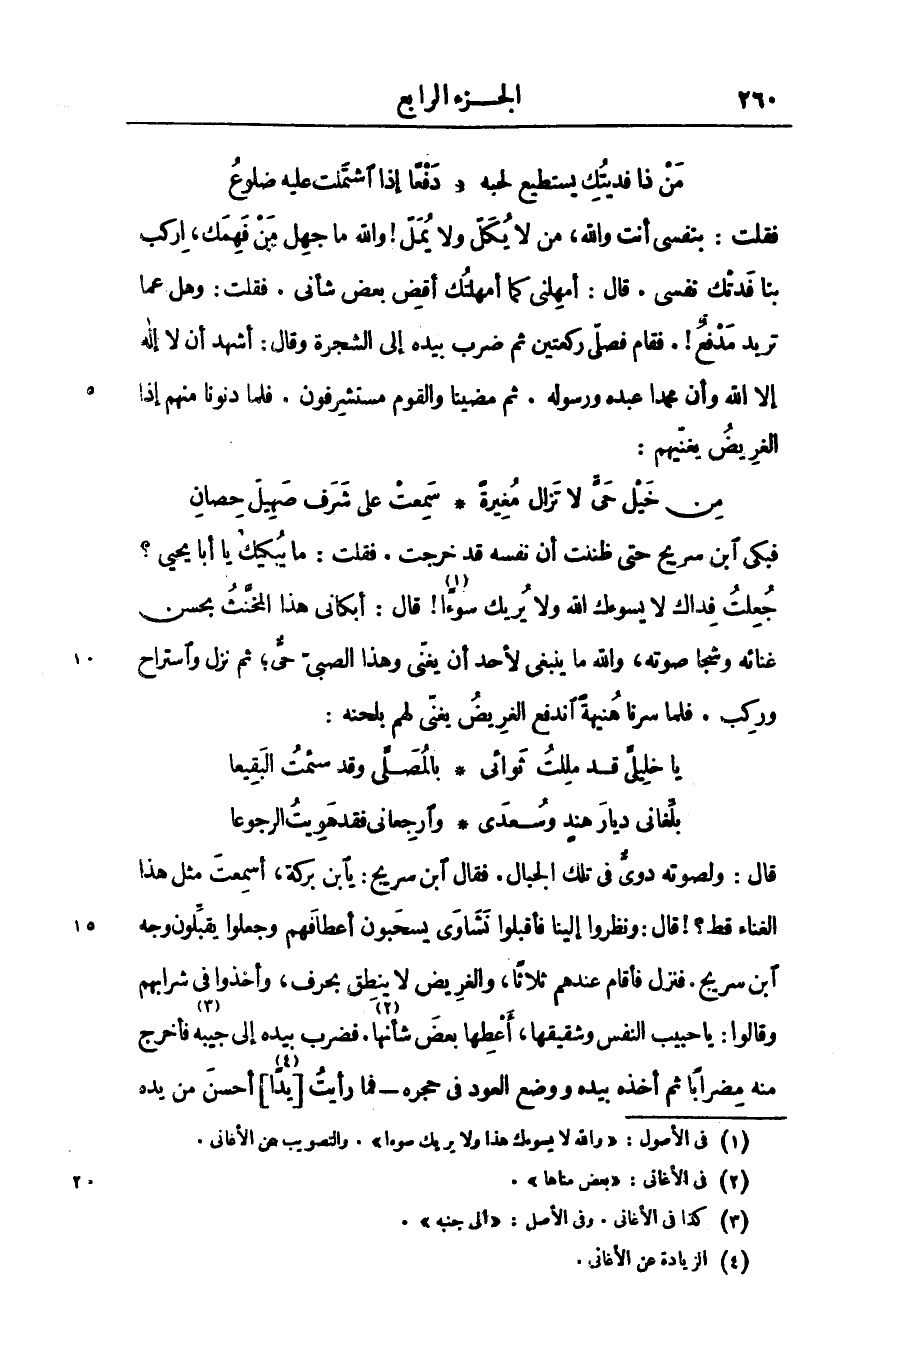 ٢٦٠ الجـزء الرابع
مَنْ ذا فديتُكِ يستطيع لحبه * دَفْعًا إذا ٱشتملت عليه ضلوعُ
فقلت : بنفسى أنت والله، من لا يُكَلّ ولا يُمَلّ! والله ما جهل مَنْ فَهِمَك، اِركب
بنا فَدَتْك نفسى . قال : أمهلنى كما أمهلتُك أقضِ بعض شأنى . فقلت : وهل عما
تريد مَدْفعٌ! . فقام فصلّى ركعتين ثم ضرب بيده إلى الشجرة وقال : أشهد أن لا إله
إلا الله وأن محمدا عبده ورسوله . ثم مضينا والقوم مستشرِفون . فلما دنونا منهم إذا ٥
الغرِيضُ يغنّيهم :
مِن خَيْل حَىٍّ لا تَزال مُغِيرةً * سَمِعتْ على شَرَف صَهِيلَ حِصانِ
فبكى ٱبن سريج حتى ظننت أن نفسه قد خرجت . فقلت : ما يُبكيك يا أبا يحيى ؟
جُعِلتُ فِداك لا يسوءك الله ولا يُريك سوءًا(١)! قال : أبكانى هذا المخنَّثُ بحسن
غنائه وشجا صوته، والله ما ينبغى لأحد أن يغنّى وهذا الصبىّ حىٌّ؛ ثم نزل وٱستراح ١٠
وركِب . فلما سرنا هُنيهةً ٱندفع الغريضُ يغنّى لهم بلحنه :
يا خليلىّ قـد مللتُ ثَوائى * بالمُصَـلَّى وقد سئمتُ البَقِيعا
بلِّغانى ديارَ هندٍ وسُـعدَى * وٱرجعانى فقد هَوِيتُ الرجوعا
قال : ولصوته دوىٌّ فى تلك الجبال. فقال ٱبن سريج : يٱبن بركة، أسمِعتَ مثل هذا
الغناء قط؟! قال : ونظروا إلينا فأقبلوا نَشَاوَى يسحَبون أعطافَهم وجعلوا يقبِّلون وجه ١٥
ٱبن سريج. فنزل فأقام عندهم ثلاثًا، والغريض لا ينطِق بحرف، وأخذوا فى شرابهم
وقالوا : ياحبيب النفس وشقيقها، أَعْطِها بعضَ شأنها(٢). فضرب بيده إلى جيبه(٣) فأخرج
منه مِضرابًا ثم أخذه بيده ووضع العود فى حجره ــ فما رأيتُ [يدًا](٤) أحسنَ من يده
(١) فى الأصول : «والله لا يسوءك هذا ولا يريك سوءا» . والتصويب عن الأغانى .
(٢) فى الأغانى : «بعض مناها» . ٢٠
(٣) كذا فى الأغانى . وفى الأصل : «الى جنبه» .
(٤) الزيادة عن الأغانى .